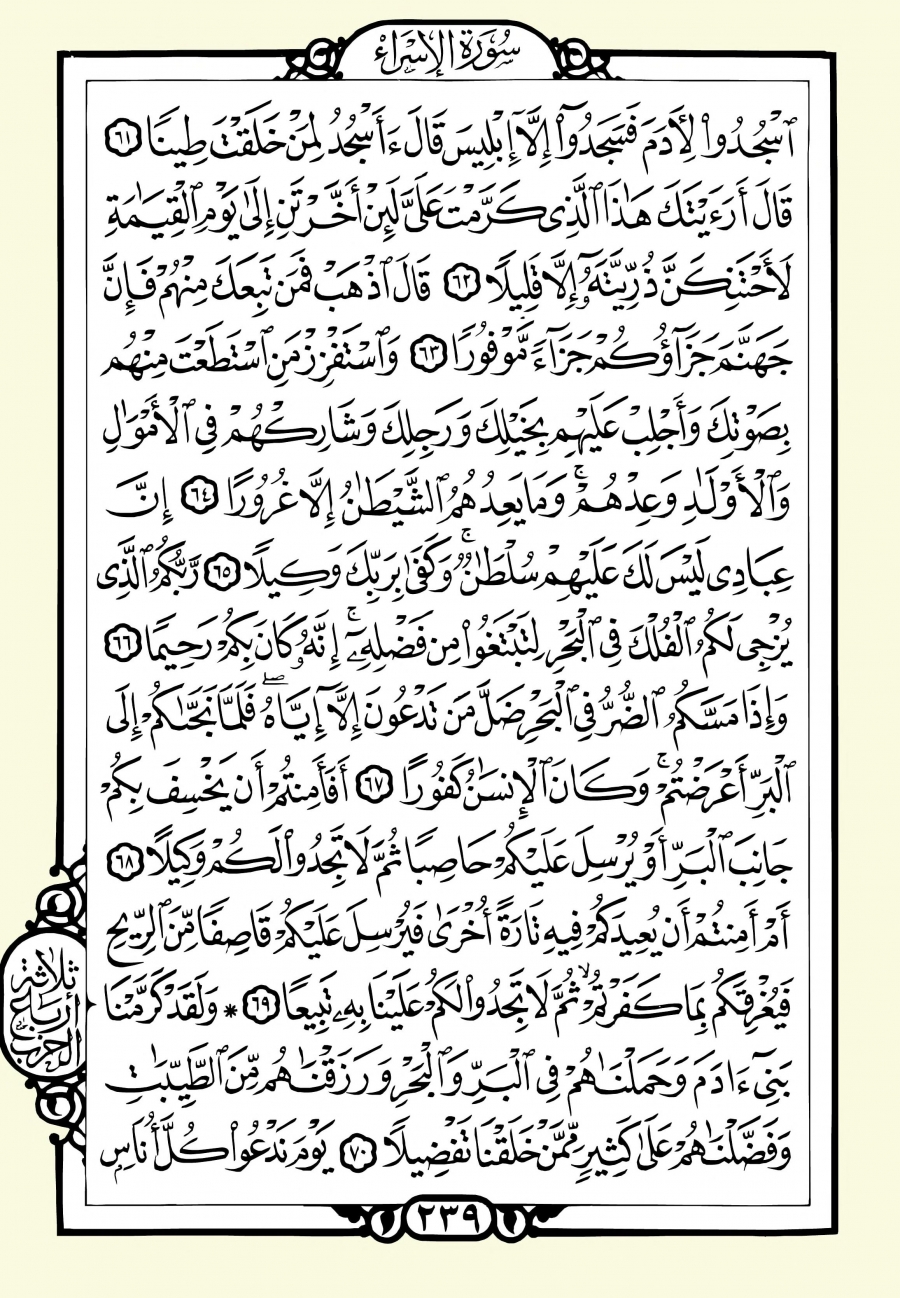 سُورَةُ الإِسْرَاءِ
ٱسْجُدُوا۟ لِأَدَمَ فَسَجَدُوٓا۟ إِلَّآ إِبْلِيسَ قَالَ ءَأَسْجُدُ لِمَنْ خَلَقْتَ طِينًا ٦١
قَالَ أَرَءَيْتَكَ هَٰذَا ٱلَّذِى كَرَّمْتَ عَلَىَّ لَئِنْ أَخَّرْتَنِ إِلَىٰ يَوْمِ ٱلْقِيَٰمَةِ
لَأَحْتَنِكَنَّ ذُرِّيَّتَهُۥٓ إِلَّا قَلِيلًا ٦٢ قَالَ ٱذْهَبْ فَمَن تَبِعَكَ مِنْهُمْ فَإِنَّ
جَهَنَّمَ جَزَآؤُكُمْ جَزَآءً مَّوْفُورًا ٦٣ وَٱسْتَفْزِزْ مَنِ ٱسْتَطَعْتَ مِنْهُم
بِصَوْتِكَ وَأَجْلِبْ عَلَيْهِم بِخَيْلِكَ وَرَجِلِكَ وَشَارِكْهُمْ فِى ٱلْأَمْوَٰلِ
وَٱلْأَوْلَٰدِ وَعِدْهُمْ ۚ وَمَا يَعِدُهُمُ ٱلشَّيْطَٰنُ إِلَّا غُرُورًا ٦٤ إِنَّ
عِبَادِى لَيْسَ لَكَ عَلَيْهِمْ سُلْطَٰنٌ ۚ وَكَفَىٰ بِرَبِّكَ وَكِيلًا ٦٥ رَّبُّكُمُ ٱلَّذِى
يُزْجِى لَكُمُ ٱلْفُلْكَ فِى ٱلْبَحْرِ لِتَبْتَغُوا۟ مِن فَضْلِهِۦٓ ۚ إِنَّهُۥ كَانَ بِكُمْ رَحِيمًا ٦٦
وَإِذَا مَسَّكُمُ ٱلضُّرُّ فِى ٱلْبَحْرِ ضَلَّ مَن تَدْعُونَ إِلَّآ إِيَّاهُ ۖ فَلَمَّا نَجَّىٰكُمْ إِلَى
ٱلْبَرِّ أَعْرَضْتُمْ ۚ وَكَانَ ٱلْإِنسَٰنُ كَفُورًا ٦٧ أَفَأَمِنتُمْ أَن يَخْسِفَ بِكُمْ
جَانِبَ ٱلْبَرِّ أَوْ يُرْسِلَ عَلَيْكُمْ حَاصِبًا ثُمَّ لَا تَجِدُوا۟ لَكُمْ وَكِيلًا ٦٨
أَمْ أَمِنتُمْ أَن يُعِيدَكُمْ فِيهِ تَارَةً أُخْرَىٰ فَيُرْسِلَ عَلَيْكُمْ قَاصِفًا مِّنَ ٱلرِّيحِ
فَيُغْرِقَكُم بِمَا كَفَرْتُمْ ۙ ثُمَّ لَا تَجِدُوا۟ لَكُمْ عَلَيْنَا بِهِۦ تَبِيعًا ٦٩ * وَلَقَدْ كَرَّمْنَا
بَنِىٓ ءَادَمَ وَحَمَلْنَٰهُمْ فِى ٱلْبَرِّ وَٱلْبَحْرِ وَرَزَقْنَٰهُم مِّنَ ٱلطَّيِّبَٰتِ
وَفَضَّلْنَٰهُمْ عَلَىٰ كَثِيرٍ مِّمَّنْ خَلَقْنَا تَفْضِيلًا ٧٠ يَوْمَ نَدْعُوا۟ كُلَّ أُنَاسٍۭ
ثلاثة
أرباع
الحزب
٢٣٩